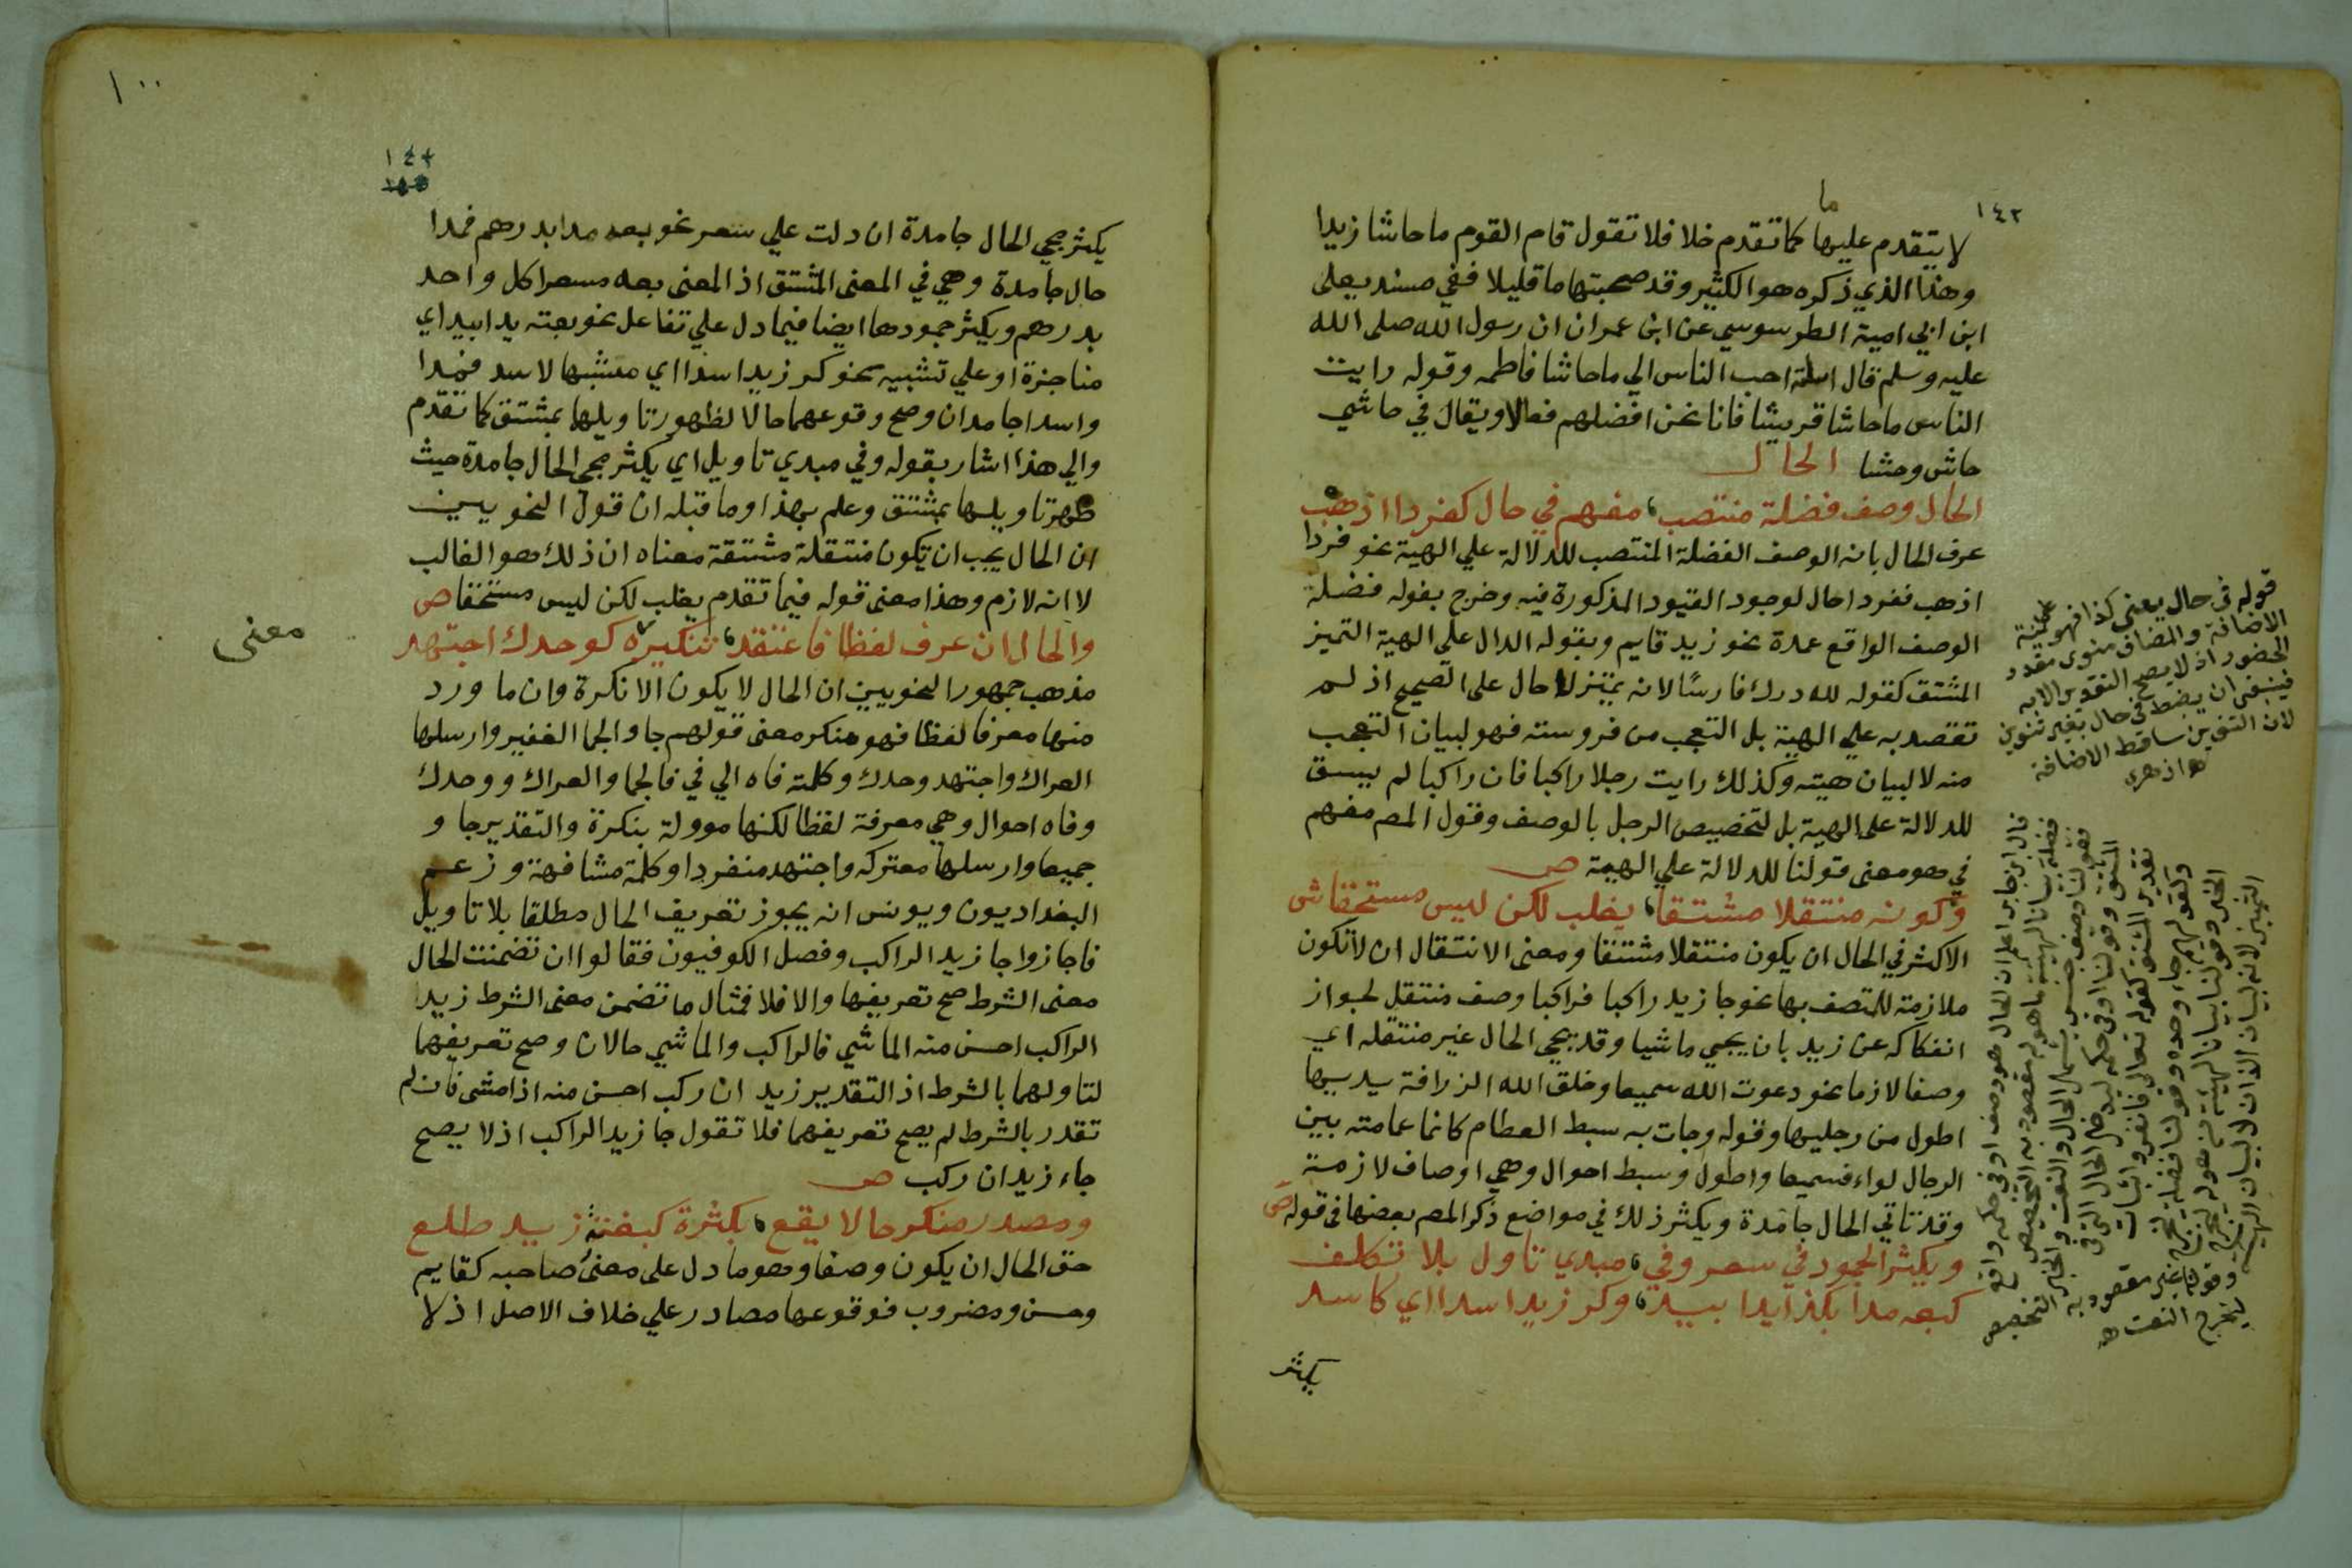 ١٤٢
ما
لا يتقدم عليها كما تقدم خلا فلا تقول قام القوم ما حاشا زيدا
وهذا الذي ذكره هو الكثير وقد صحبتها ما قليلا ففي مسند يعلى
ابن ابي امية الطرسوسي عن ابن عمران ان رسول الله صلى الله
عليه وسلم قال اسامة احب الناس الي ما حاشا فاطمه وقوله رايت
الناس ما حاشا قريشا فانا نحن افضلهم فعالا ويقال في حاشي
حاش وحشا الحال
الحال وصف فضلة منتصب، مفهم في حال كفردا اذهب
عرف الحال بانه الوصف الفضلة المنتصب للدلالة علي الهية نحو فردا
اذهب ففردا حال لوجود القيود المذكورة فيه وخرج بقوله فضلة
الوصف الواقع عمدة نحو زيد قايم وبقوله الدال علي الهية التميز
المشتق كقوله لله درك فارسا لانه تمييز لا حال على الصحيح اذ لم
تقصد به علي الهية بل التعجب من فروسته فهو لبيان التعجب
منه لا لبيان هيته وكذلك رايت رجلا راكبا فان راكبا لم يسق
للدلالة على الهية بل لتخصيص الرجل بالوصف وقول المص مفهم
في هو معنى قولنا للدلالة علي الهية ص
وكونه منتقلا مشتقا، يغلب لكن ليس مستحقا ش
الاكثر في الحال ان يكون منتقلا مشتقا ومعنى الانتقال ان لا تكون
ملازمة للمتصف بها نحو جا زيد راكبا فراكبا وصف منتقل لجواز
انفكاكه عن زيد بان يجي ماشيا وقد يجي الحال غير منتقله اي
وصفا لازما نحو دعوت الله سميعا وخلق الله الزرافة يديها
اطول من رجليها وقوله وجات به سبط العظام كانما عمامته بين
الرجال لواء فسميعا واطول وسبط احوال وهي اوصاف لازمة
وقد تاتي الحال جامدة ويكثر ذلك في مواضع ذكر المص بعضها في قوله ص
ويكثر الجمود في سعر وفي، مبدي تاول بلا تكلف
كبعه مدا بكذا يدا بيد، وكر زيد اسدا اي كاسد
يكثر
قوله في حال يعني كذا فهو على نية
الاضافة والمضاف منوي مقدر
الحضور اذ لا يصح التقدير الا به
فينبغي ان يضبط في حال بغير تنوين
لان التنوين ساقط الاضافة
ه ازهري
قال ابن جابر اعلم ان الحال هو وصف او في حكمه واقع
فضلة بيانا لهيئة ما هو له
ليخرج النعت ه
١٠٠
١٤٣
يكثر مجي الحال جامدة ان دلت علي سعر نحو بعه مدا بدرهم فمدا
حال جامدة وهي في المعنى المشتق اذ المعنى بعه مسعرا كل واحد
بدرهم ويكثر جمودها ايضا فيما دل علي تفاعل نحو بعته يدا بيد اي
مناجزة او علي تشبيه نحو كر زيد اسدا اي مشبها لاسد فيدا
واسدا جامدان وصح وقوعهما حالا لظهور تاويلها بمشتق كما تقدم
والي هذا اشار بقوله وفي مبدي تاويل اي يكثر مجي الحال جامدة حيث
ظهر تاويلها بمشتق وعلم بهذا وما قبله ان قول النحويين
ان الحال يجب ان تكون منتقلة مشتقة معناه ان ذلك هو الغالب
لا انه لازم وهذا معنى قوله فيما تقدم يغلب لكن ليس مستحقا ص
والحال ان عرف لفظا فاعتقد، تنكيره كوحدك اجتهد
معنى
مذهب جمهور النحويين ان الحال لا يكون الا نكرة وان ما ورد
منها معرفا لفظا فهو منكر معنى قولهم جاوا الجما الغفير وارسلها
العراك واجتهد وحدك وكلمته فاه الي في فالجما والعراك ووحدك
وفاه احوال وهي معرفة لفظا لكنها موولة بنكرة والتقدير جاو
جميعا وارسلها معتركه واجتهد منفردا وكلمة مشافهة وزعم
البغداديون ويونس انه يجوز تعريف الحال مطلقا بلا تاويل
فاجازوا جا زيد الراكب وفصل الكوفيون فقالوا ان تضمنت الحال
معنى الشرط صح تعريفها والا فلا فمثال ما تضمن معنى الشرط زيد
الراكب احسن منه الماشي فالراكب والماشي حالان وصح تعريفهما
لتاولهما بالشرط اذ التقدير زيد ان ركب احسن منه اذا مشى فان لم
تقدر بالشرط لم يصح تعريفهما فلا تقول جا زيد الراكب اذ لا يصح
جاء زيد ان ركب ص
ومصدر منكر حالا يقع، بكثرة كبغتة زيد طلع
حق الحال ان يكون وصفا وهو ما دل على معنى وصاحبه كقايم
وحسن ومضروب فوقوعها مصادر علي خلاف الاصل اذ لا